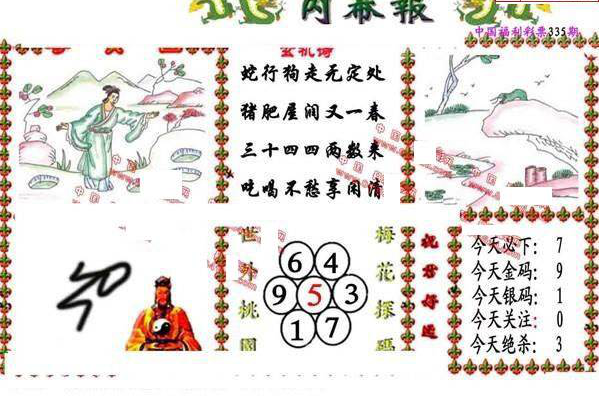 内幕報
中国福利彩票335期
玄机诗
蛇行狗走无定处
猪肥屋润又一春
三十四四两数来
吃喝不愁享闲清
世外桃園
6 4
9 5 3
1 7
梅花探碼
祝君好运
今天必下: 7
今天金码: 9
今天银码: 1
今天关注: 0
今天绝杀: 3